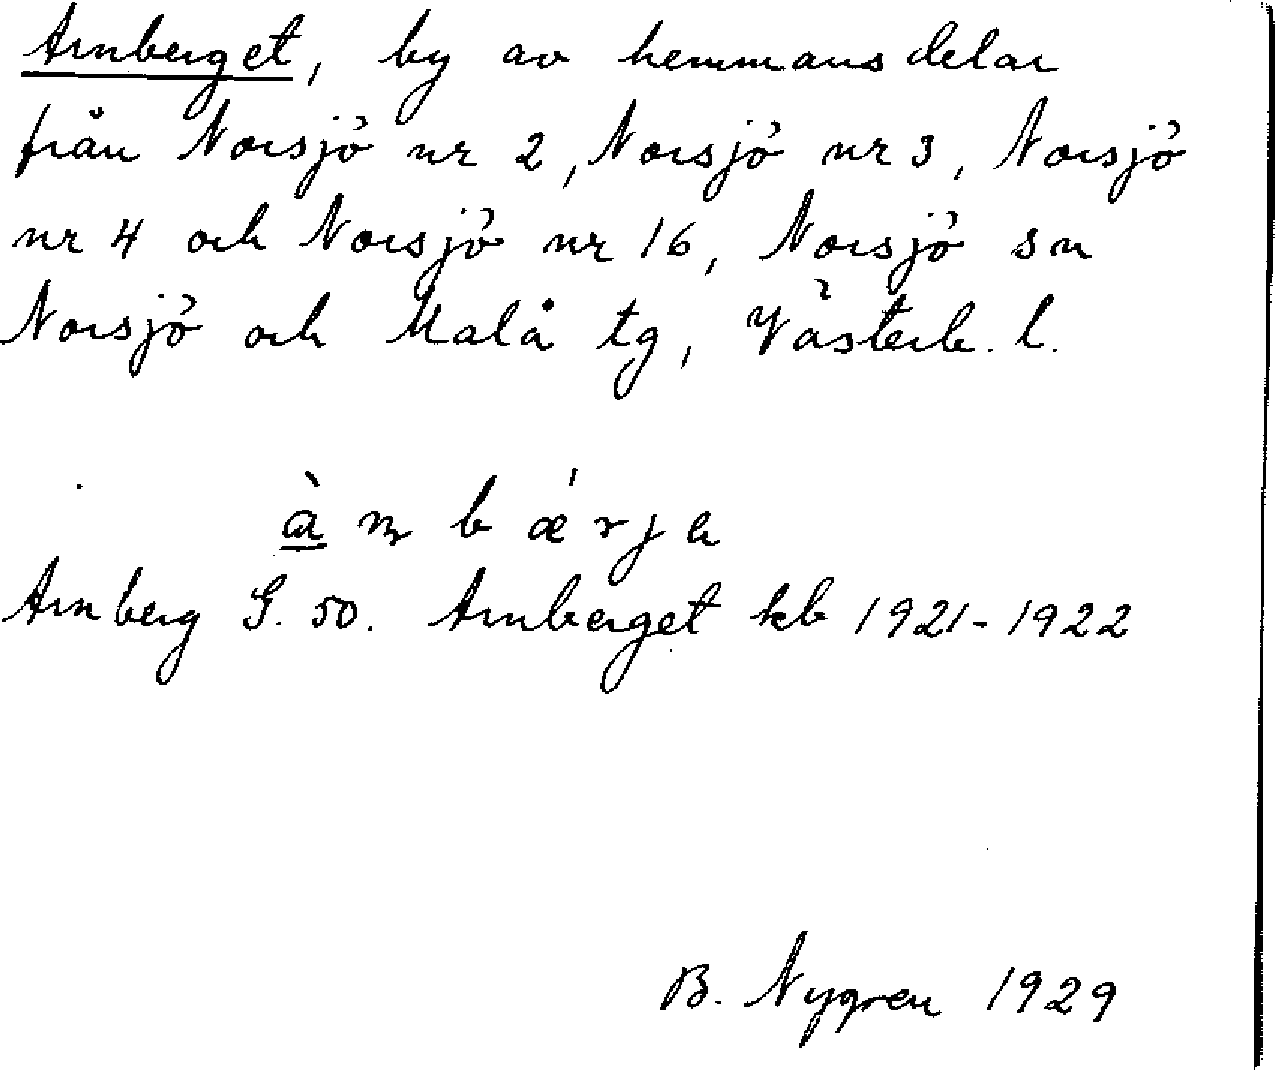 Arnberget, by av hemmansdelar
från Norsjö nr 2, Norsjö nr 3, Norsjö
nr 4 och Norsjö nr 16, Norsjö sn
Norsjö och Malå tg, Västerb. l.
à n b ǽ r j a
Arnberg G. 50. Arnberget kb 1921-1922
B. Nygren 1929